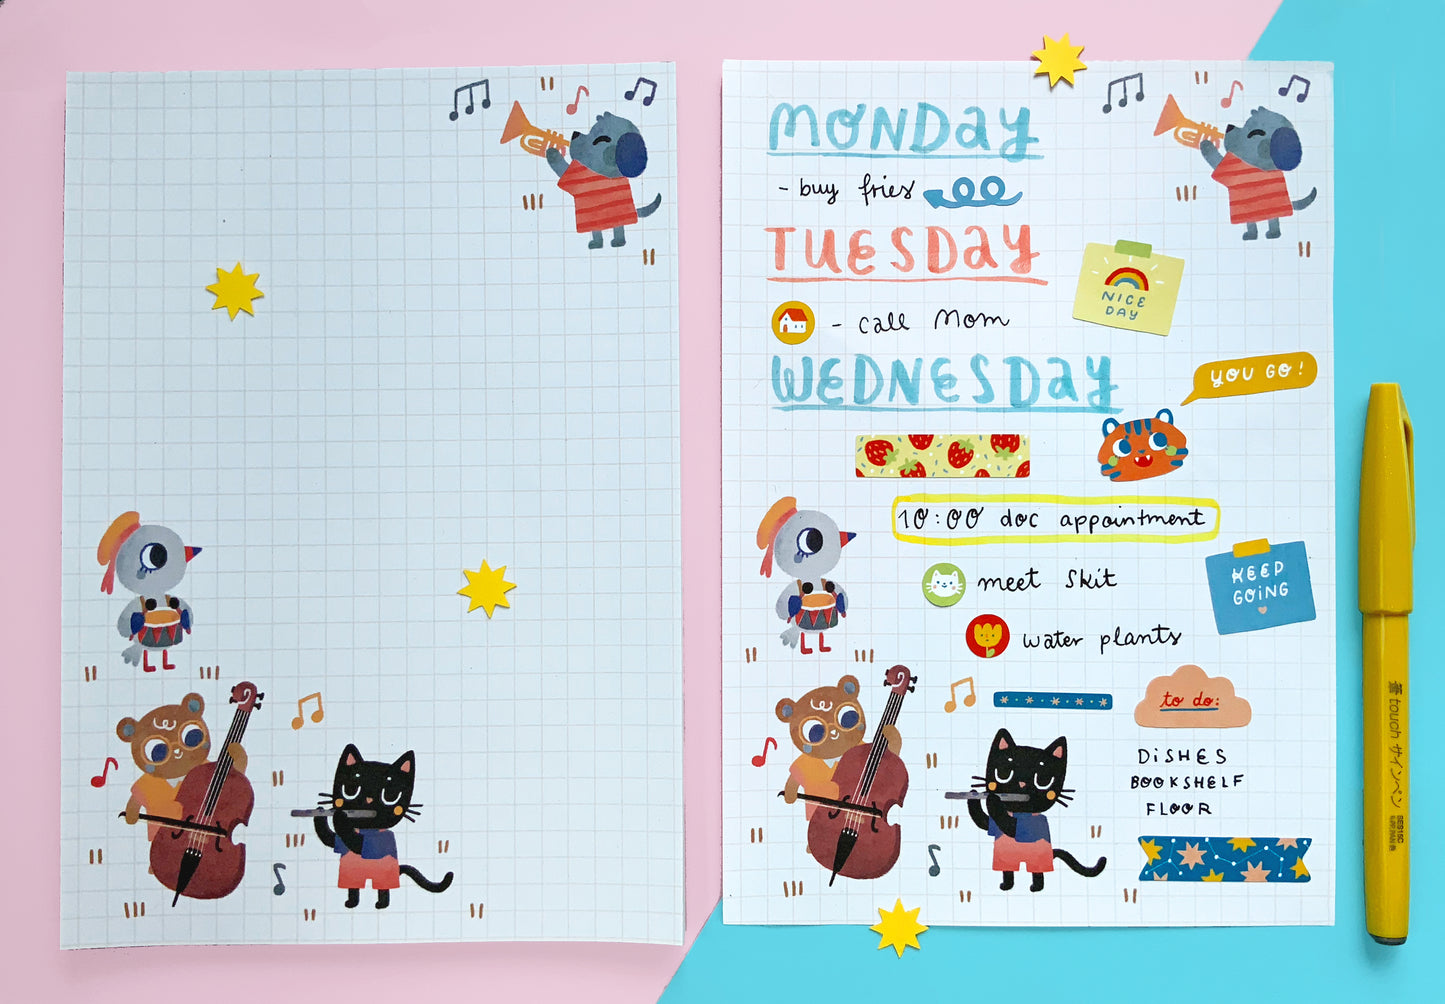 MONDAY
- buy fries
TUESDAY
NICE
DAY
- call Mom
WEDNESDAY
YOU GO!
10:00 doc appointment
KEEP
GOING
meet Skit
water plants
to do:
DISHES
BOOKSHELF
FLOOR
筆touch サインペン
SES15C